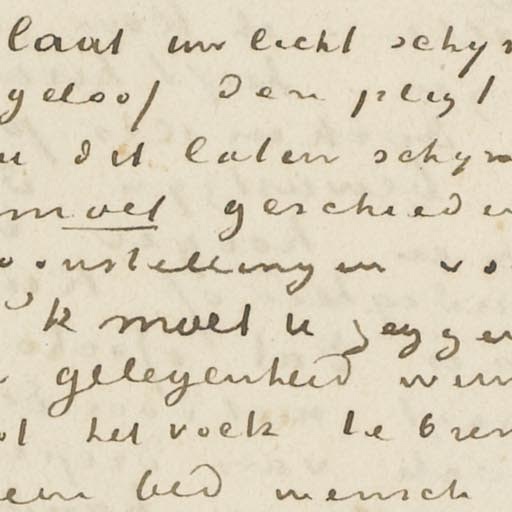 laat uw licht schyn
geloof den pligt
u dit laten schyn
moet geschieden
oonstellingen vo
Ik moet u zeggen
gelegenheid
ot het volk te bren
een bed mensch